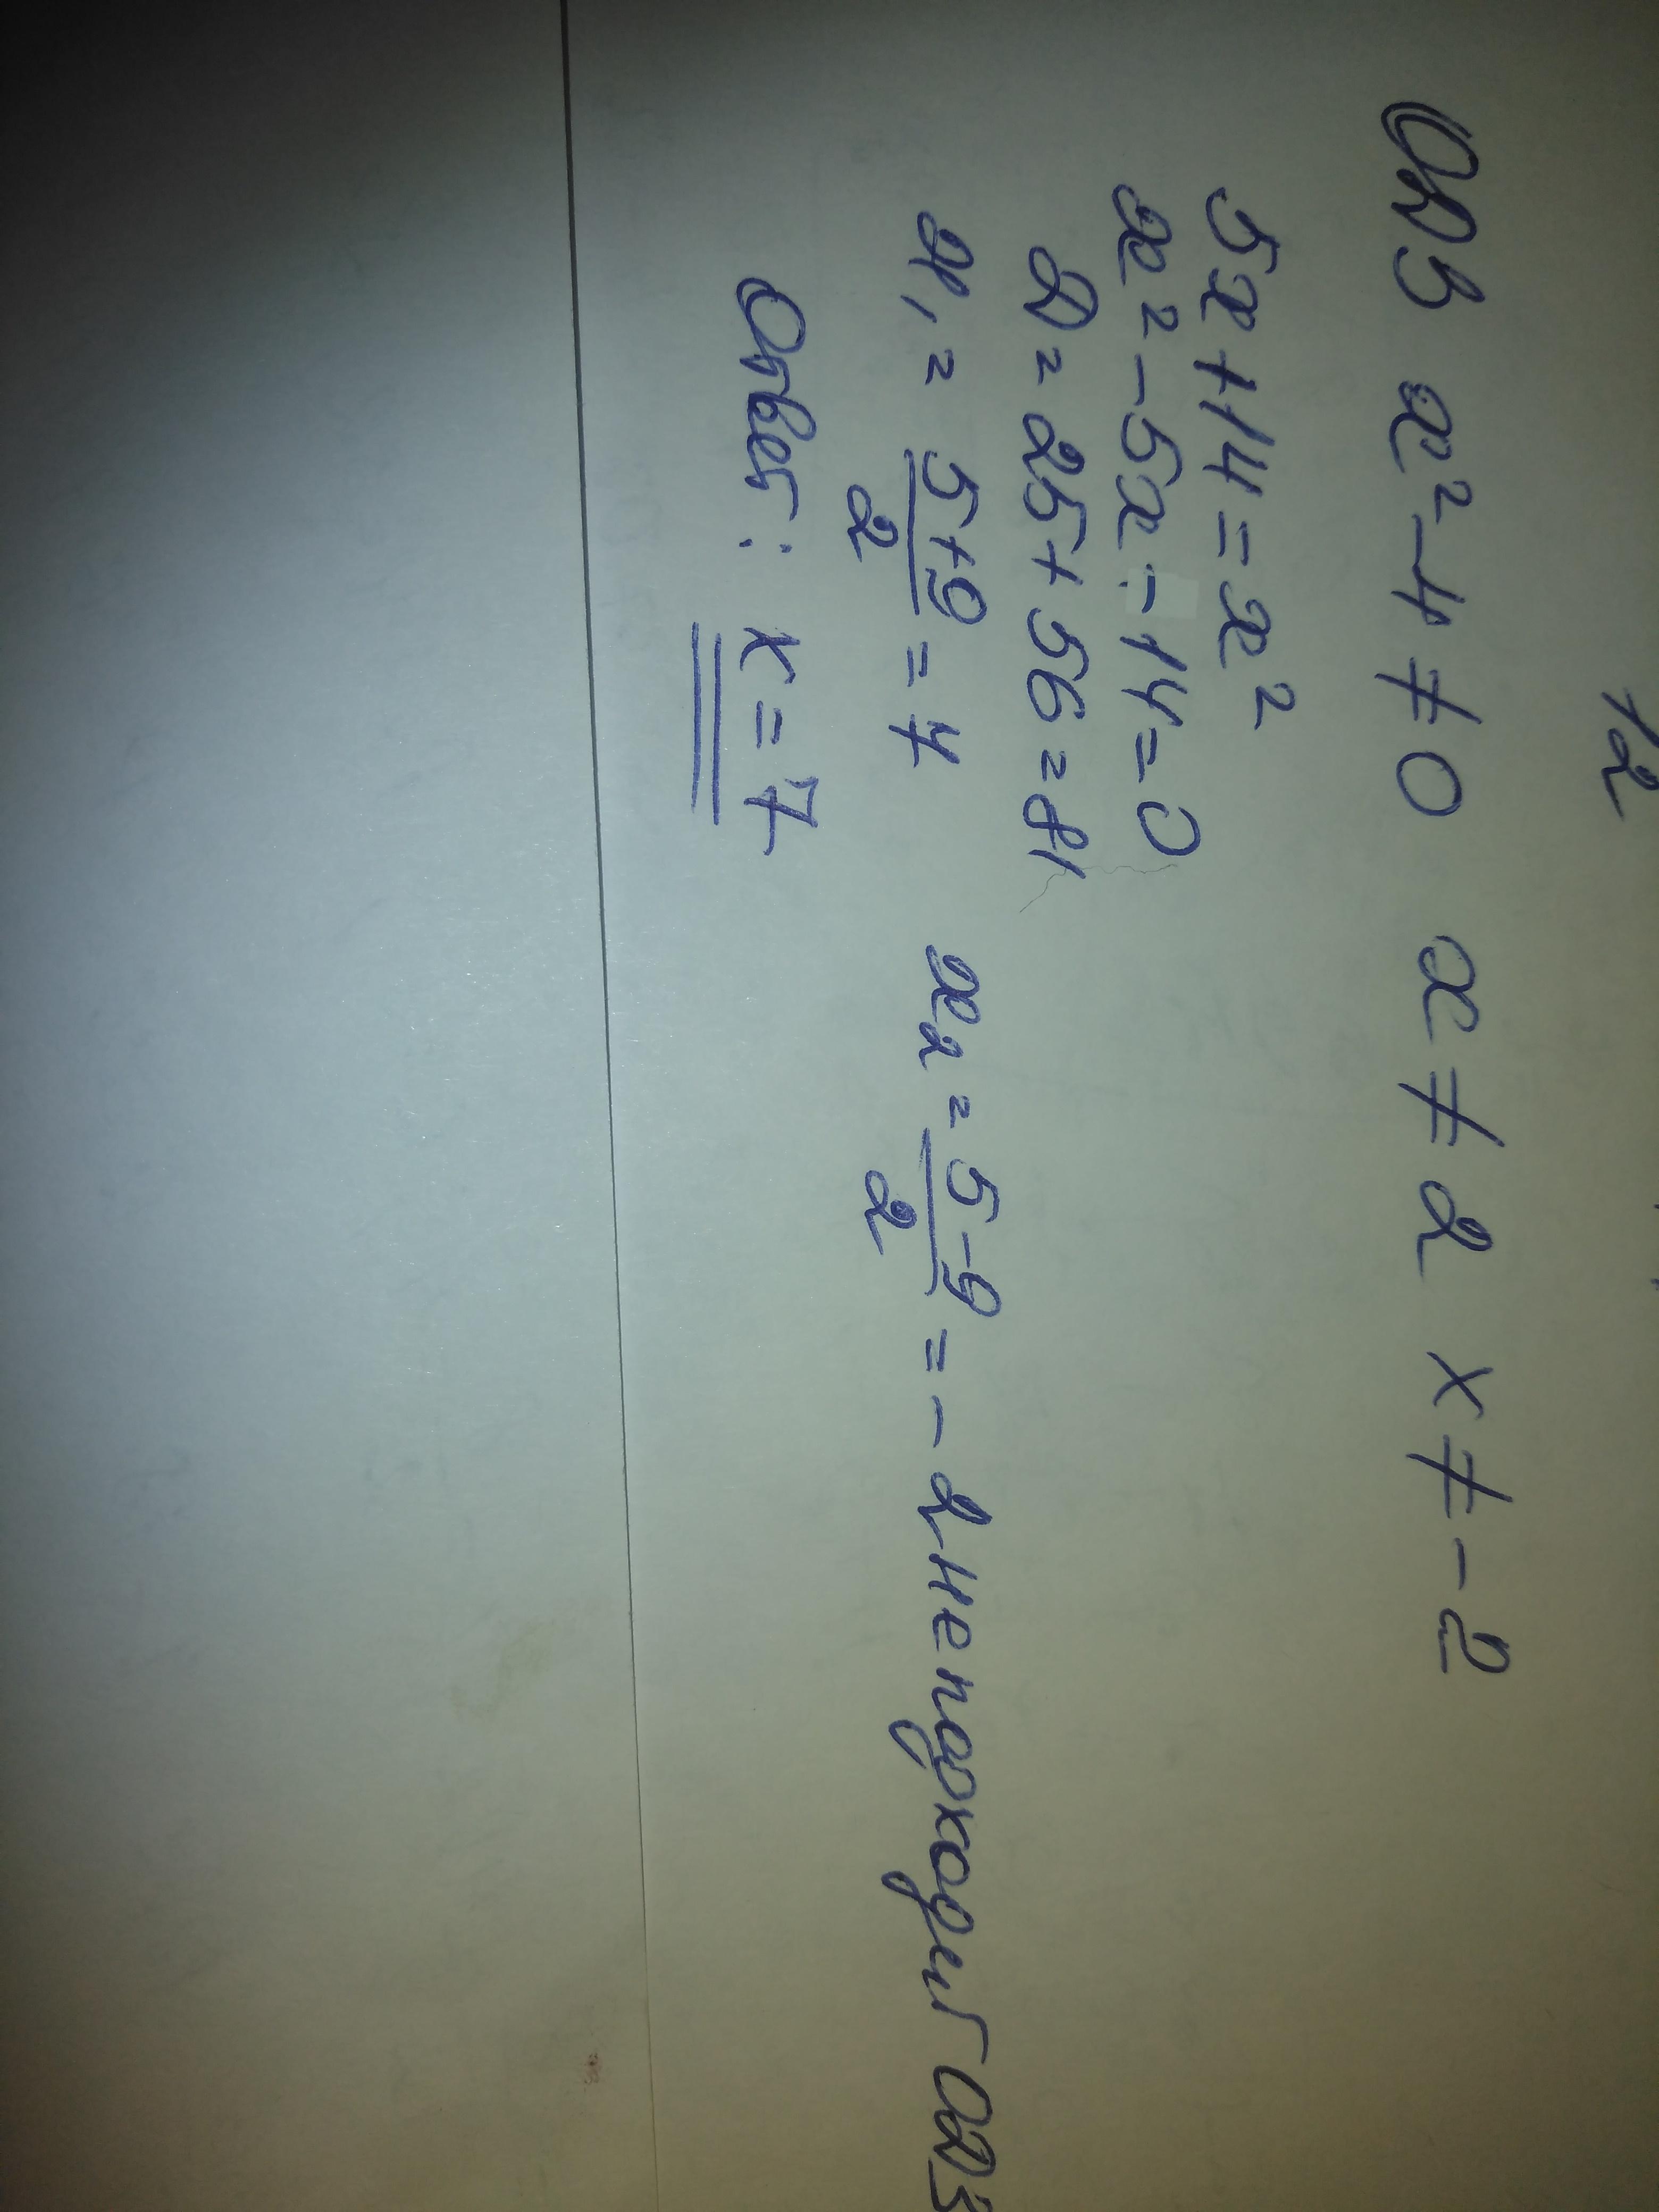 12
ОДЗ x² - 4 ≠ 0 x ≠ 2 x ≠ -2
5x + 14 = x²
x² - 5x - 14 = 0
D = 25 + 56 = 81
x₁ = (5+9)/2 = 7 x₂ = (5-9)/2 = -2 не подходит ОДЗ
Ответ: x = 7